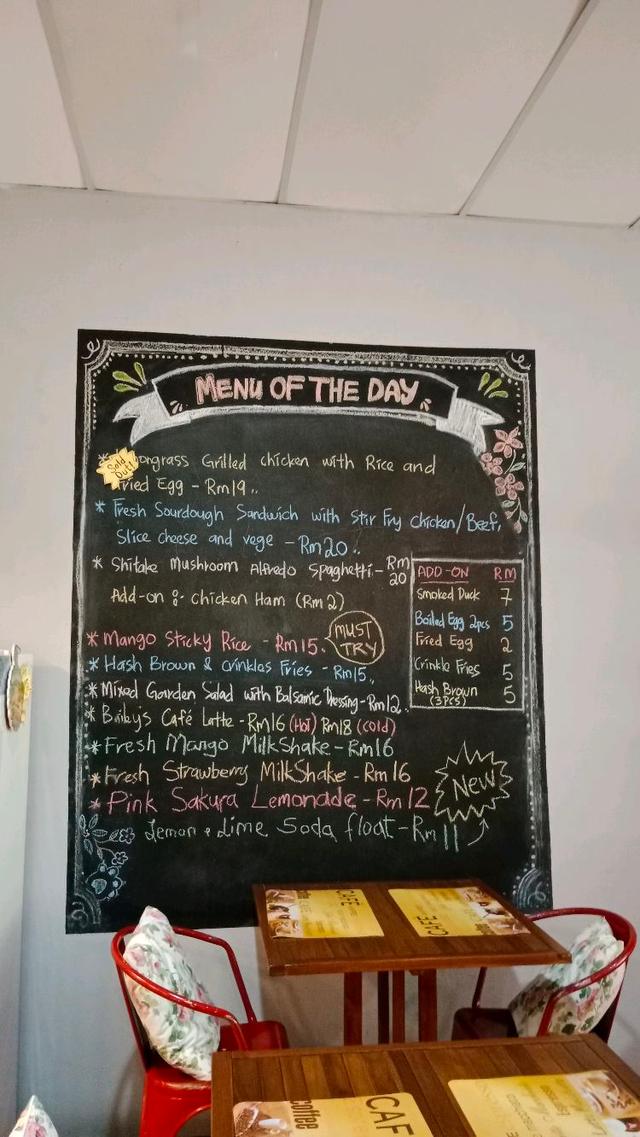 MENU OF THE DAY
Sold Out!
ongrass Grilled chicken with Rice and
Fried Egg - Rm19..
* Fresh Sourdough Sandwich with Stir Fry chicken/Beef,
Slice cheese and vege - Rm20..
* Shitake Mushroom Alfredo Spaghetti - Rm 20
Add-on : Chicken Ham (Rm2)
* Mango Sticky Rice - Rm15.
MUST TRY
* Hash Brown & Crinkles Fries - Rm15,
* Mixed Garden Salad with Balsamic Dressing - Rm12.
* Café Latte - Rm16 (Hot) Rm18 (cold)
* Fresh Mango MilkShake - Rm16
* Fresh Strawberry MilkShake - Rm16
* Pink Sakura Lemonade - Rm12
Lemon & Lime Soda float - Rm11
New
ADD-ON RM
Smoked Duck 7
Boiled Egg 2pcs 5
Fried Egg 2
Crinkle Fries 5
Hash Brown 5
(3PCS)
CAFE
CAFE
coffee
CAF